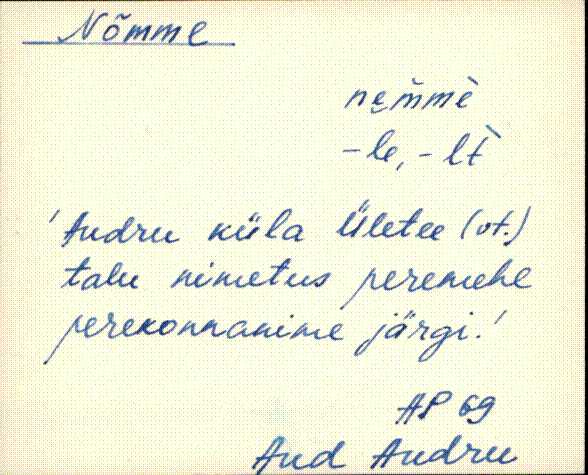 Nõmme
ne̮m̆mè
-le, -lt̀
'Andru küla Ületee (vt.)
talu nimetus peremehe
perekonnanime järgi.'
AP 69
Aud Andru